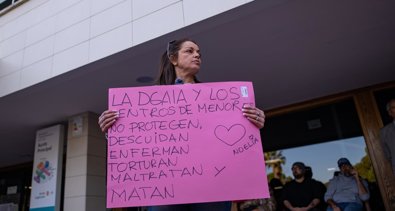 LA DGAIA Y LOS
CENTROS DE MENORES
NO PROTEGEN,
DESCUIDAN
ENFERMAN
TORTURAN
MALTRATAN Y
MATAN
NOELIA